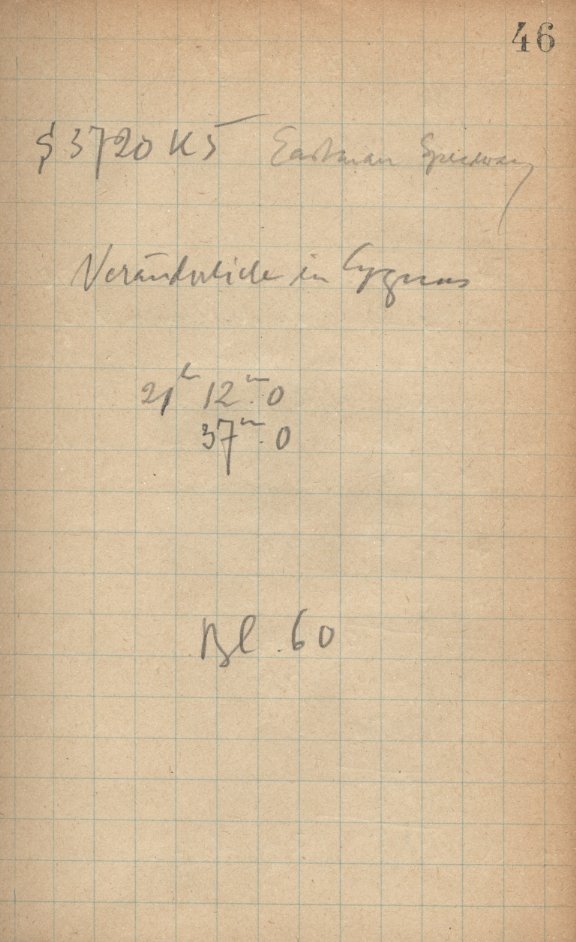 46
§ 3720 K5 Eastman Speedway
Veränderliche in Cygnus
21ʰ 12ᵐ.0
37ᵐ.0
Bl. 60